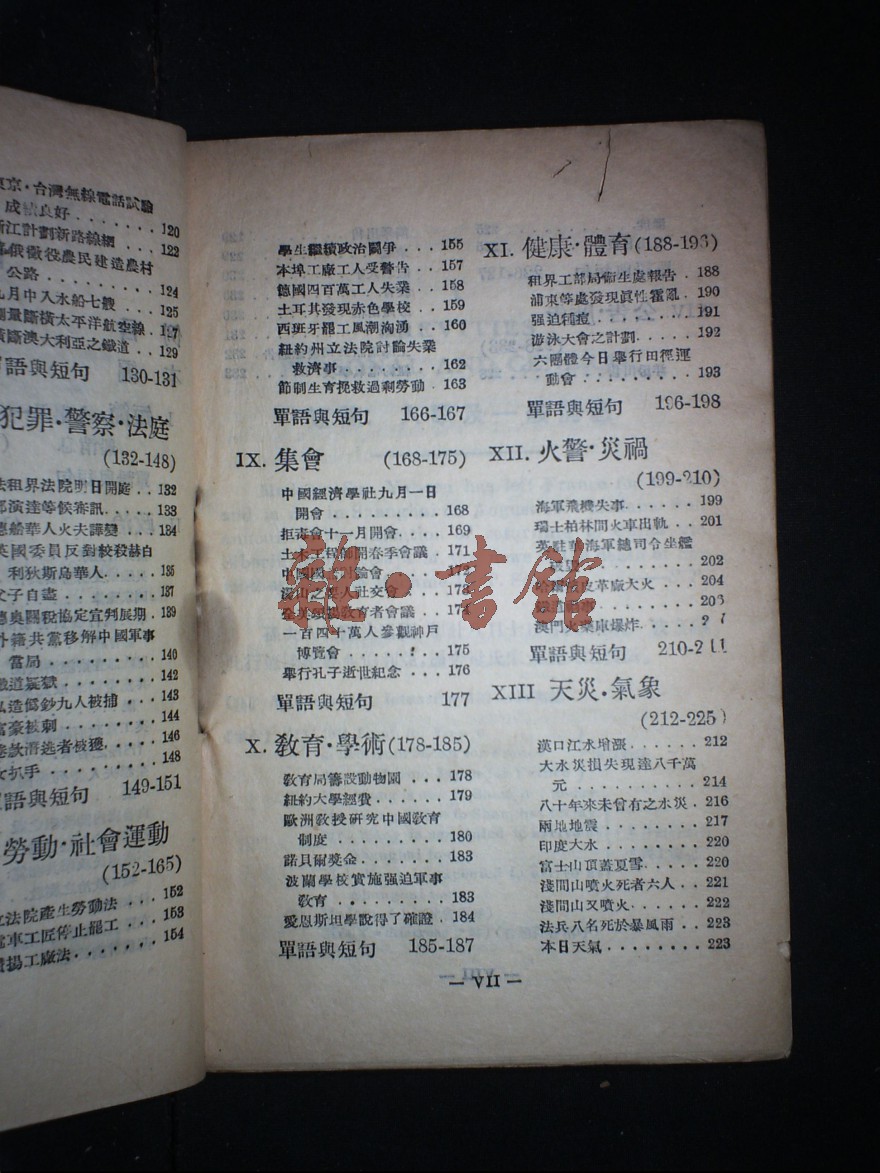 京·台灣無線電話試驗
成績良好 . . . . . . . 120
浙江計劃新路線網 . . . 122
俄徵役農民建造農村
公路 . . . . . . . . 124
九月中入水船七艘 . . . 125
測量斷橫太平洋航空線 . 127
橫斷澳大利亞之鐵道 . . 129
單語與短句 130-131
犯罪·警察·法庭
(132-148)
法租界法院明日開庭 . . 132
鄧演達等候審訊 . . . . 133
德船華人火夫譁變 . . . 134
英國委員反對絞殺赫白
利狄斯烏華人 . . . . 135
父子自盡 . . . . . . . 136
德奧關税協定宜判展期 . 139
外籍共黨移解中國軍事
當局 . . . . . . . . 140
鐵道疑獄 . . . . . . . 142
私造僞鈔九人被捕 . . . 143
富豪被刺 . . . . . . . 144
. . 146
女扒手 . . . . . . . . 148
單語與短句 149-151
勞動·社會運動
(152-165)
立法院產生勞動法 . . . 152
電車工匠停止罷工 . . . 153
工廠法 . . . . . . . 154
學生繼續政治鬭爭 . . . 155
本埠工廠工人受警告 . . 157
德國四百萬工人失業 . . 158
土耳其發現赤色學校 . . 159
西班牙罷工風潮洶湧 . . 160
紐約州立法院討論失業
救濟事 . . . . . . . 162
節制生育挽救過剩勞動 . 163
單語與短句 166-167
IX. 集會 (168-175)
中國經濟學社九月一日
開會 . . . . . . . . 168
拒毒會十一月開會 . . . 169
土木工程師開春季會議 . 171
中國國 討論會 . . . 172
溪山之 人社交會 . . 173
全英 教育者會議 . . 174
一百四十萬人參觀神戶
博覽會 . . . . . . . 175
舉行孔子逝世紀念 . . . 176
單語與短句 177
X. 敎育·學術(178-185)
敎育局籌設動物園 . . . 178
紐約大學經費 . . . . . 179
歐洲敎授研究中國敎育
制度 . . . . . . . . 180
諾貝爾獎金 . . . . . . 183
波蘭學校實施强迫軍事
敎育 . . . . . . . . 183
愛恩斯坦學說得了確證 . 184
單語與短句 185-187
XI. 健康·體育(188-193)
租界工部局衛生處報告 . 188
浦東等處發現眞性霍亂 . 190
强迫種痘 . . . . . . . 191
游泳大會之計劃 . . . . 192
六團體今日舉行田徑運
動會 . . . . . . . . 193
單語與短句 196-198
XII. 火警·災禍
(199-210)
海軍飛機失事 . . . . . 199
瑞士柏林間火車出軌 . . 201
英駐華海軍總司令坐艦
. . . . 202
皮革廠大火 . . 204
. . . 205
澳門火藥庫爆炸 . . . 207
單語與短句 210-211
XIII 天災·氣象
(212-225)
漢口江水增漲 . . . . . 212
大水災損失現達八千萬
元 . . . . . . . . . 214
八十年來未曾有之水災 . 216
兩地地震 . . . . . . . 217
印度大水 . . . . . . . 220
富士山頂蓋夏雪 . . . . 220
淺間山噴火死者六人 . . 221
淺間山又噴火 . . . . . 222
法兵八名死於暴風雨 . . 223
本日天氣 . . . . . . . 223
— VII —
雜·書館